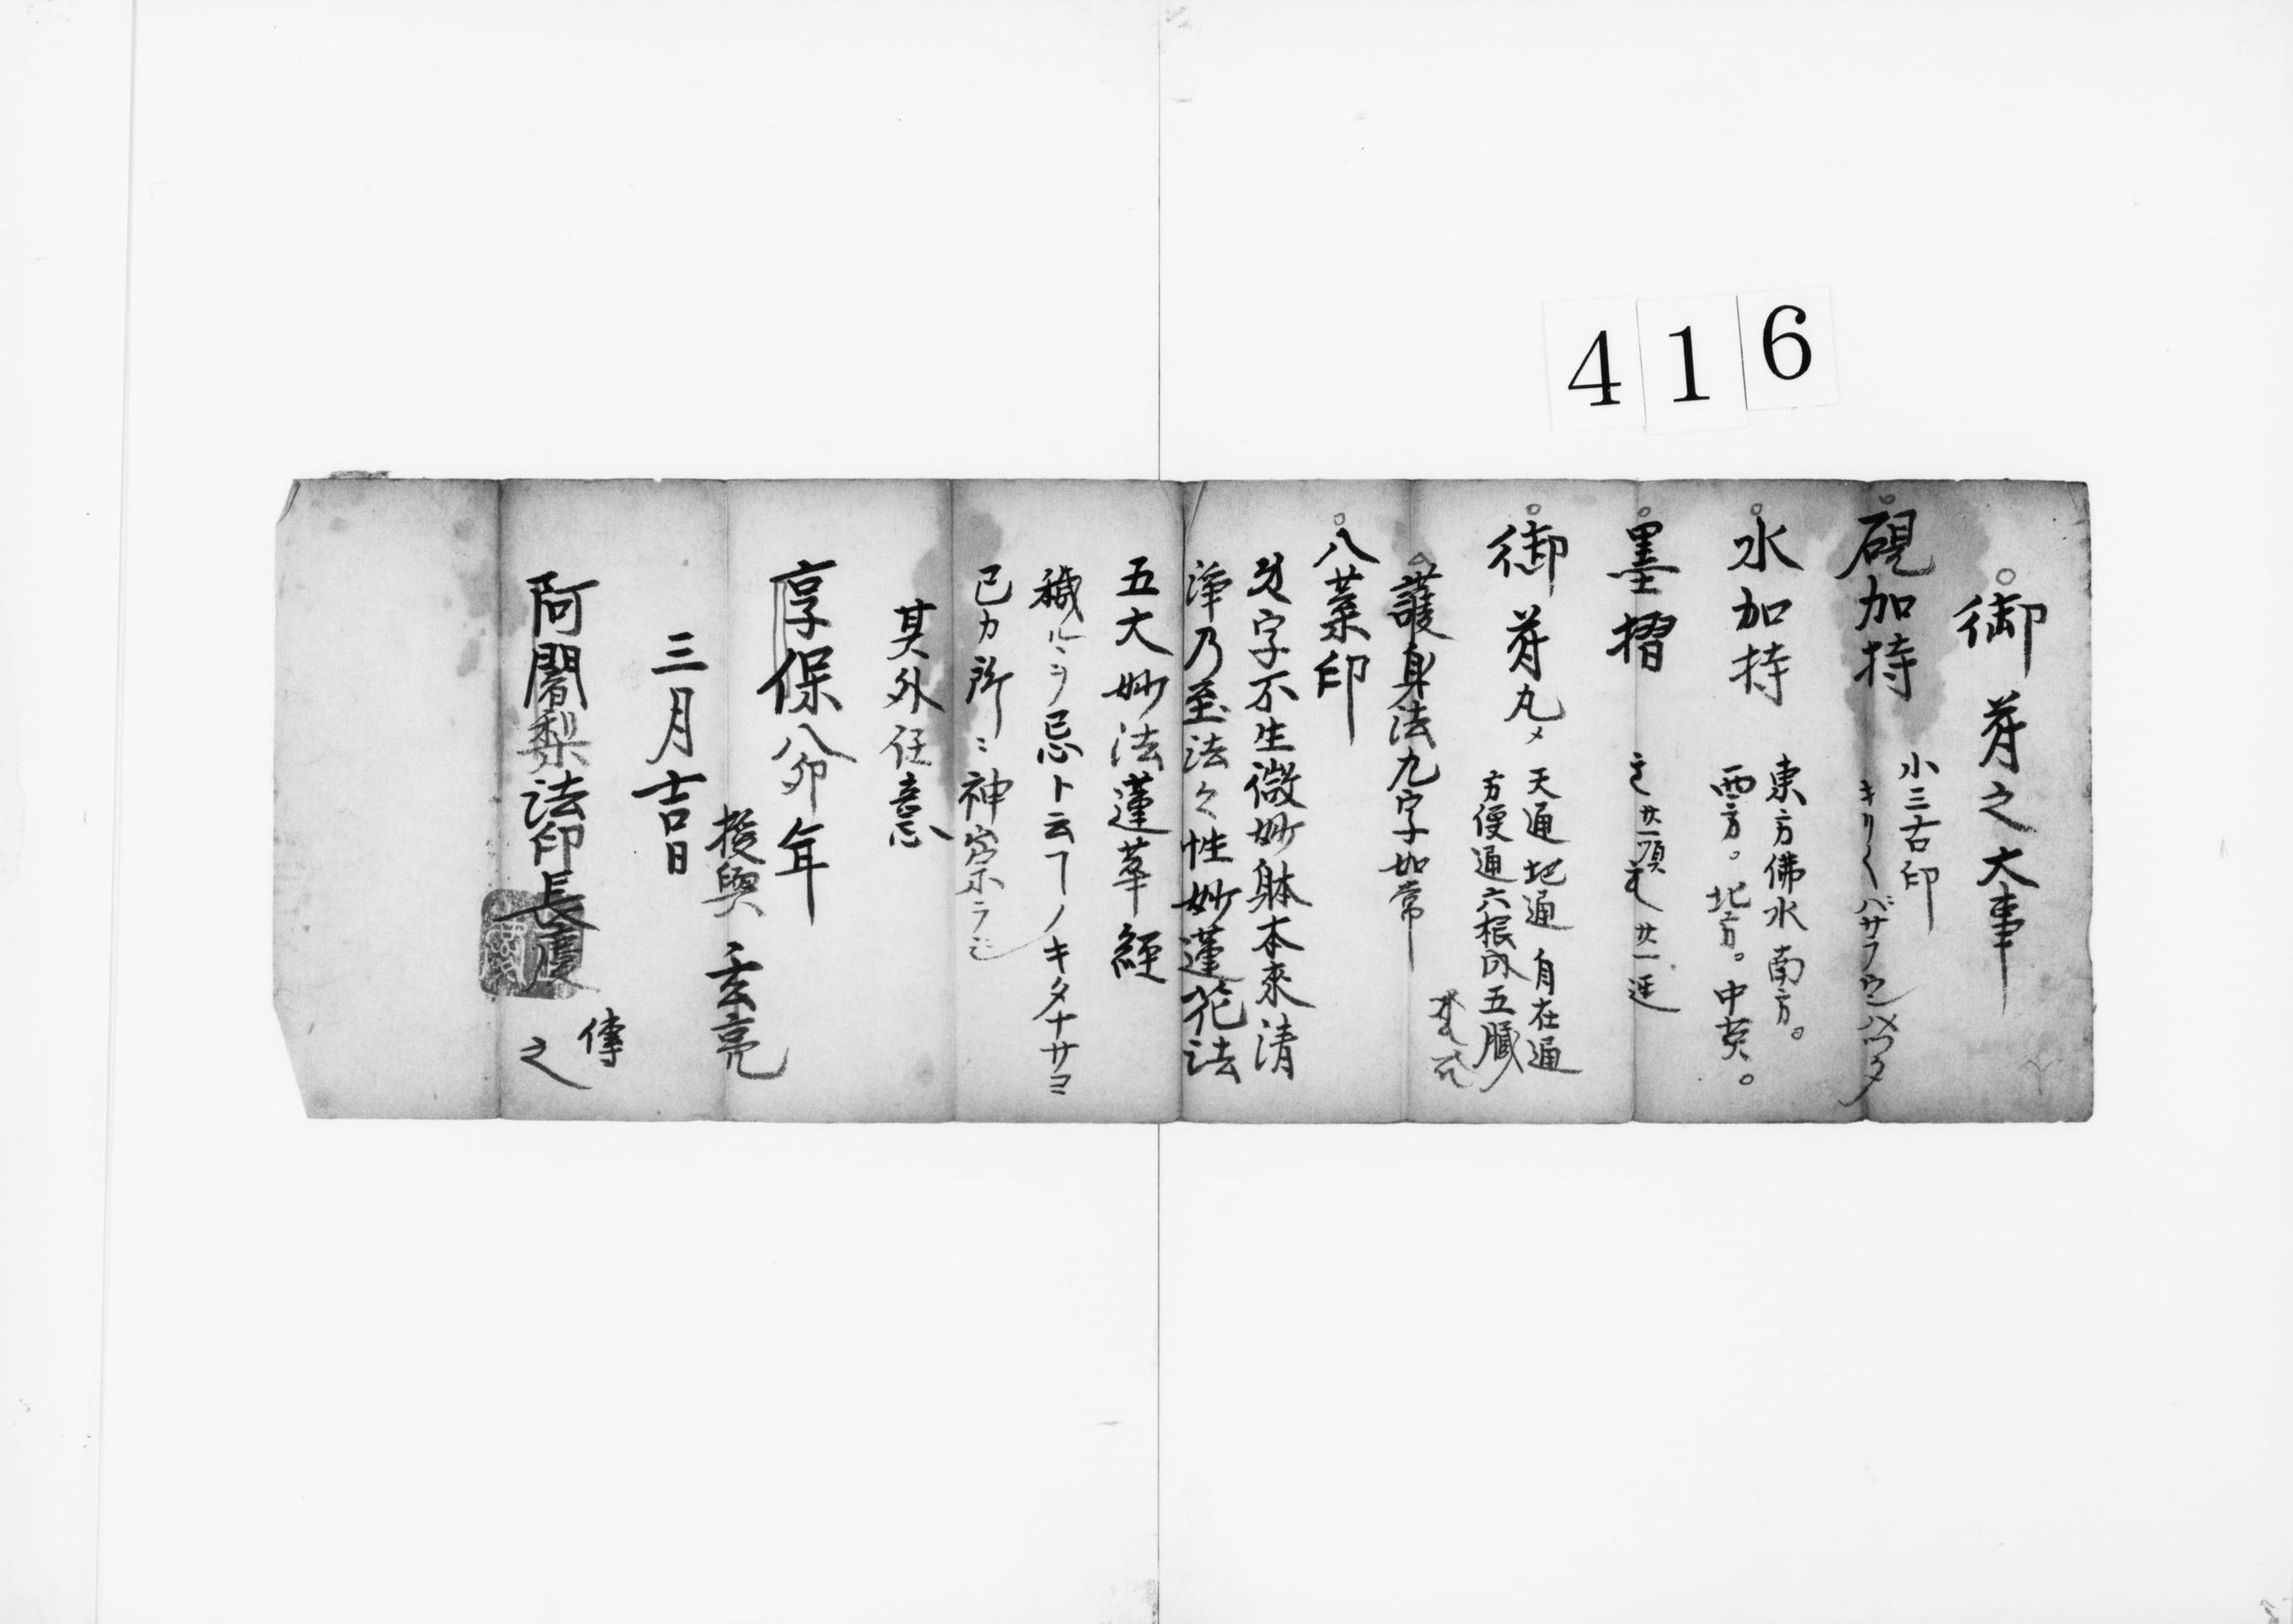 416
御符之大事
硯加持
小三古印
キリクバサラウンハツタ
水加持
東方佛水南方。
西方。北方。中英。
墨摺
御符丸〆
天通地通自在通
方便通六根内五臓
護身法九字如常
八葉印
字不生微妙躰本来清
淨乃至法々性妙蓮花法
五大妙法蓮華經
穢ルヽヲ忌ト云フノキタナサヨ
己カ所ニ神崇ラ
其外任意
享保八卯年
授與 玄亮
三月吉日
阿闍梨法印長慶
傳
之